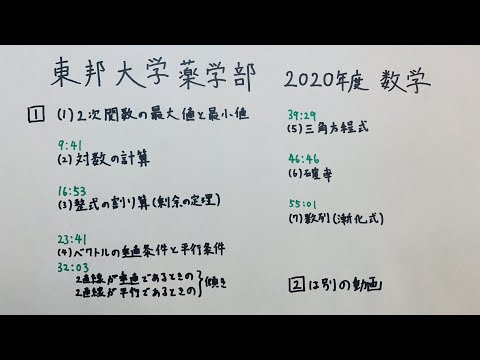 東邦大学薬学部 2020年度 数学
1 (1)2次関数の最大値と最小値
9:41
(2)対数の計算
16:53
(3)整式の割り算(剰余の定理)
23:41
(4)ベクトルの垂直条件と平行条件
32:03
2直線が垂直であるときの
2直線が平行であるときの
}傾き
39:29
(5)三角方程式
46:46
(6)確率
55:01
(7)数列(漸化式)
2は別の動画